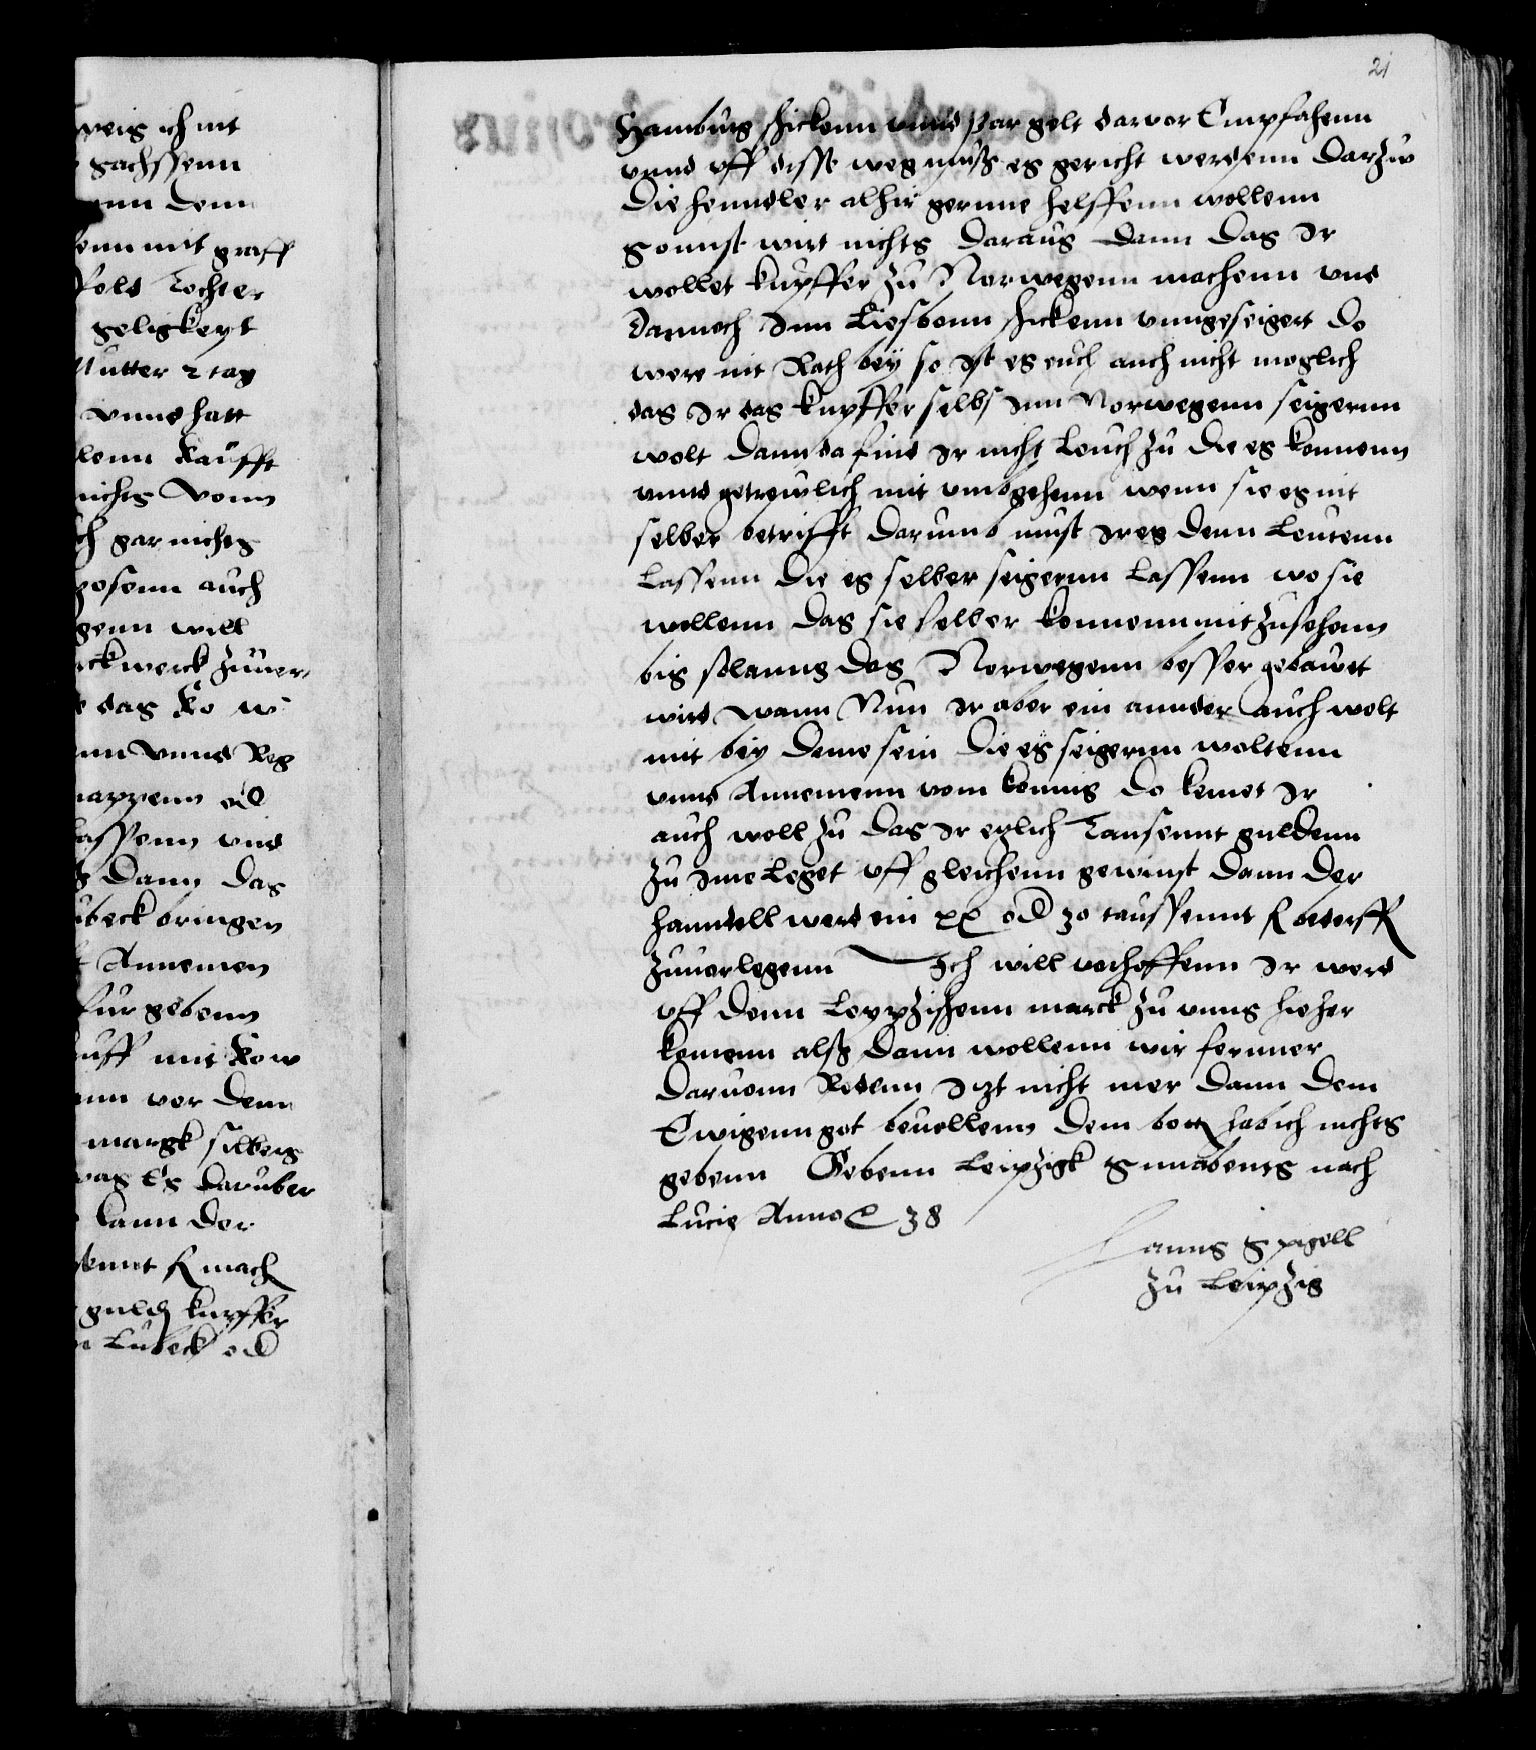 weis ich nit
sachssenn
nn denn
enn mit graff
fols Tochter
seligkeyt
Mutter 2 tag
vnnd hatt
lenn kaufft
nichts vonn
ch gar nichts
gosenn auch
genn will
ckwerck zuuer,
das ko w
nn vnnd Reg
nappenn od
lassenn vnd
s dann das
ubeck bringen
t Annemen
fur gebenn
auff mit kow
nn vor denn
margk silbers
was Es daruber
kann der
sennt fl mach
guld kupffer
Lubeck od
21
Hamburg schickenn vnnd par gelt darvor Empfahenn
vnnd vff disse weg muß es gericht werdenn Darzw
Die henndler alhir gernne helffenn wollenn
Sonnst wirt nichts Daraus Dann Das Ir
wollet kupffer zu Norwegenn machenn vnd
Darnoch Inn Liesbonn schickenn vnngeseigert Do
were nit Rath bey so Ist es euch auch nicht moglich
das Ir das kupffer selbs Inn Norwegenn seigernn
wolt Dann da sind Ir nicht Leuth zu Die es konnenn
vnnd getrewlich mit vmbgehenn wenn sie es nit
selber betrifft Darumb must Ir es denn Leutenn
Lassenn Die es selber seigernn Lassenn wo sie
wollenn Das sie selber konnenn mit zusehenn
bis solanng das Norwegenn besser gebawtt
wird Wann Nun Ir aber ein annder auch wolt
mit bey deme sein Die es seigernn woltenn
vnnd Annemenn vom konnig Do kemet Ir
auch woll zu Das Ir etzlich Tausennt guldenn
zu Ime Leget vff gleichenn gewinst Dann der
hanndell werd ein xx od 30 taussennt fl bedorff
zuuorlegenn Ich will vorhoffenn Ir werd
vff denn Leypzischenn marck zu vnns hieher
komenn alß Dann wollenn wir fernner
Daruonn Redenn Itzt nicht mer Dann dem
Ewigenn got beuollenn Dem bott hab ich nichts
gebenn Gebenn Leipzigk Sunnabents nach
Lucie Anno 38
Hanns Spigell
zu Leipzig